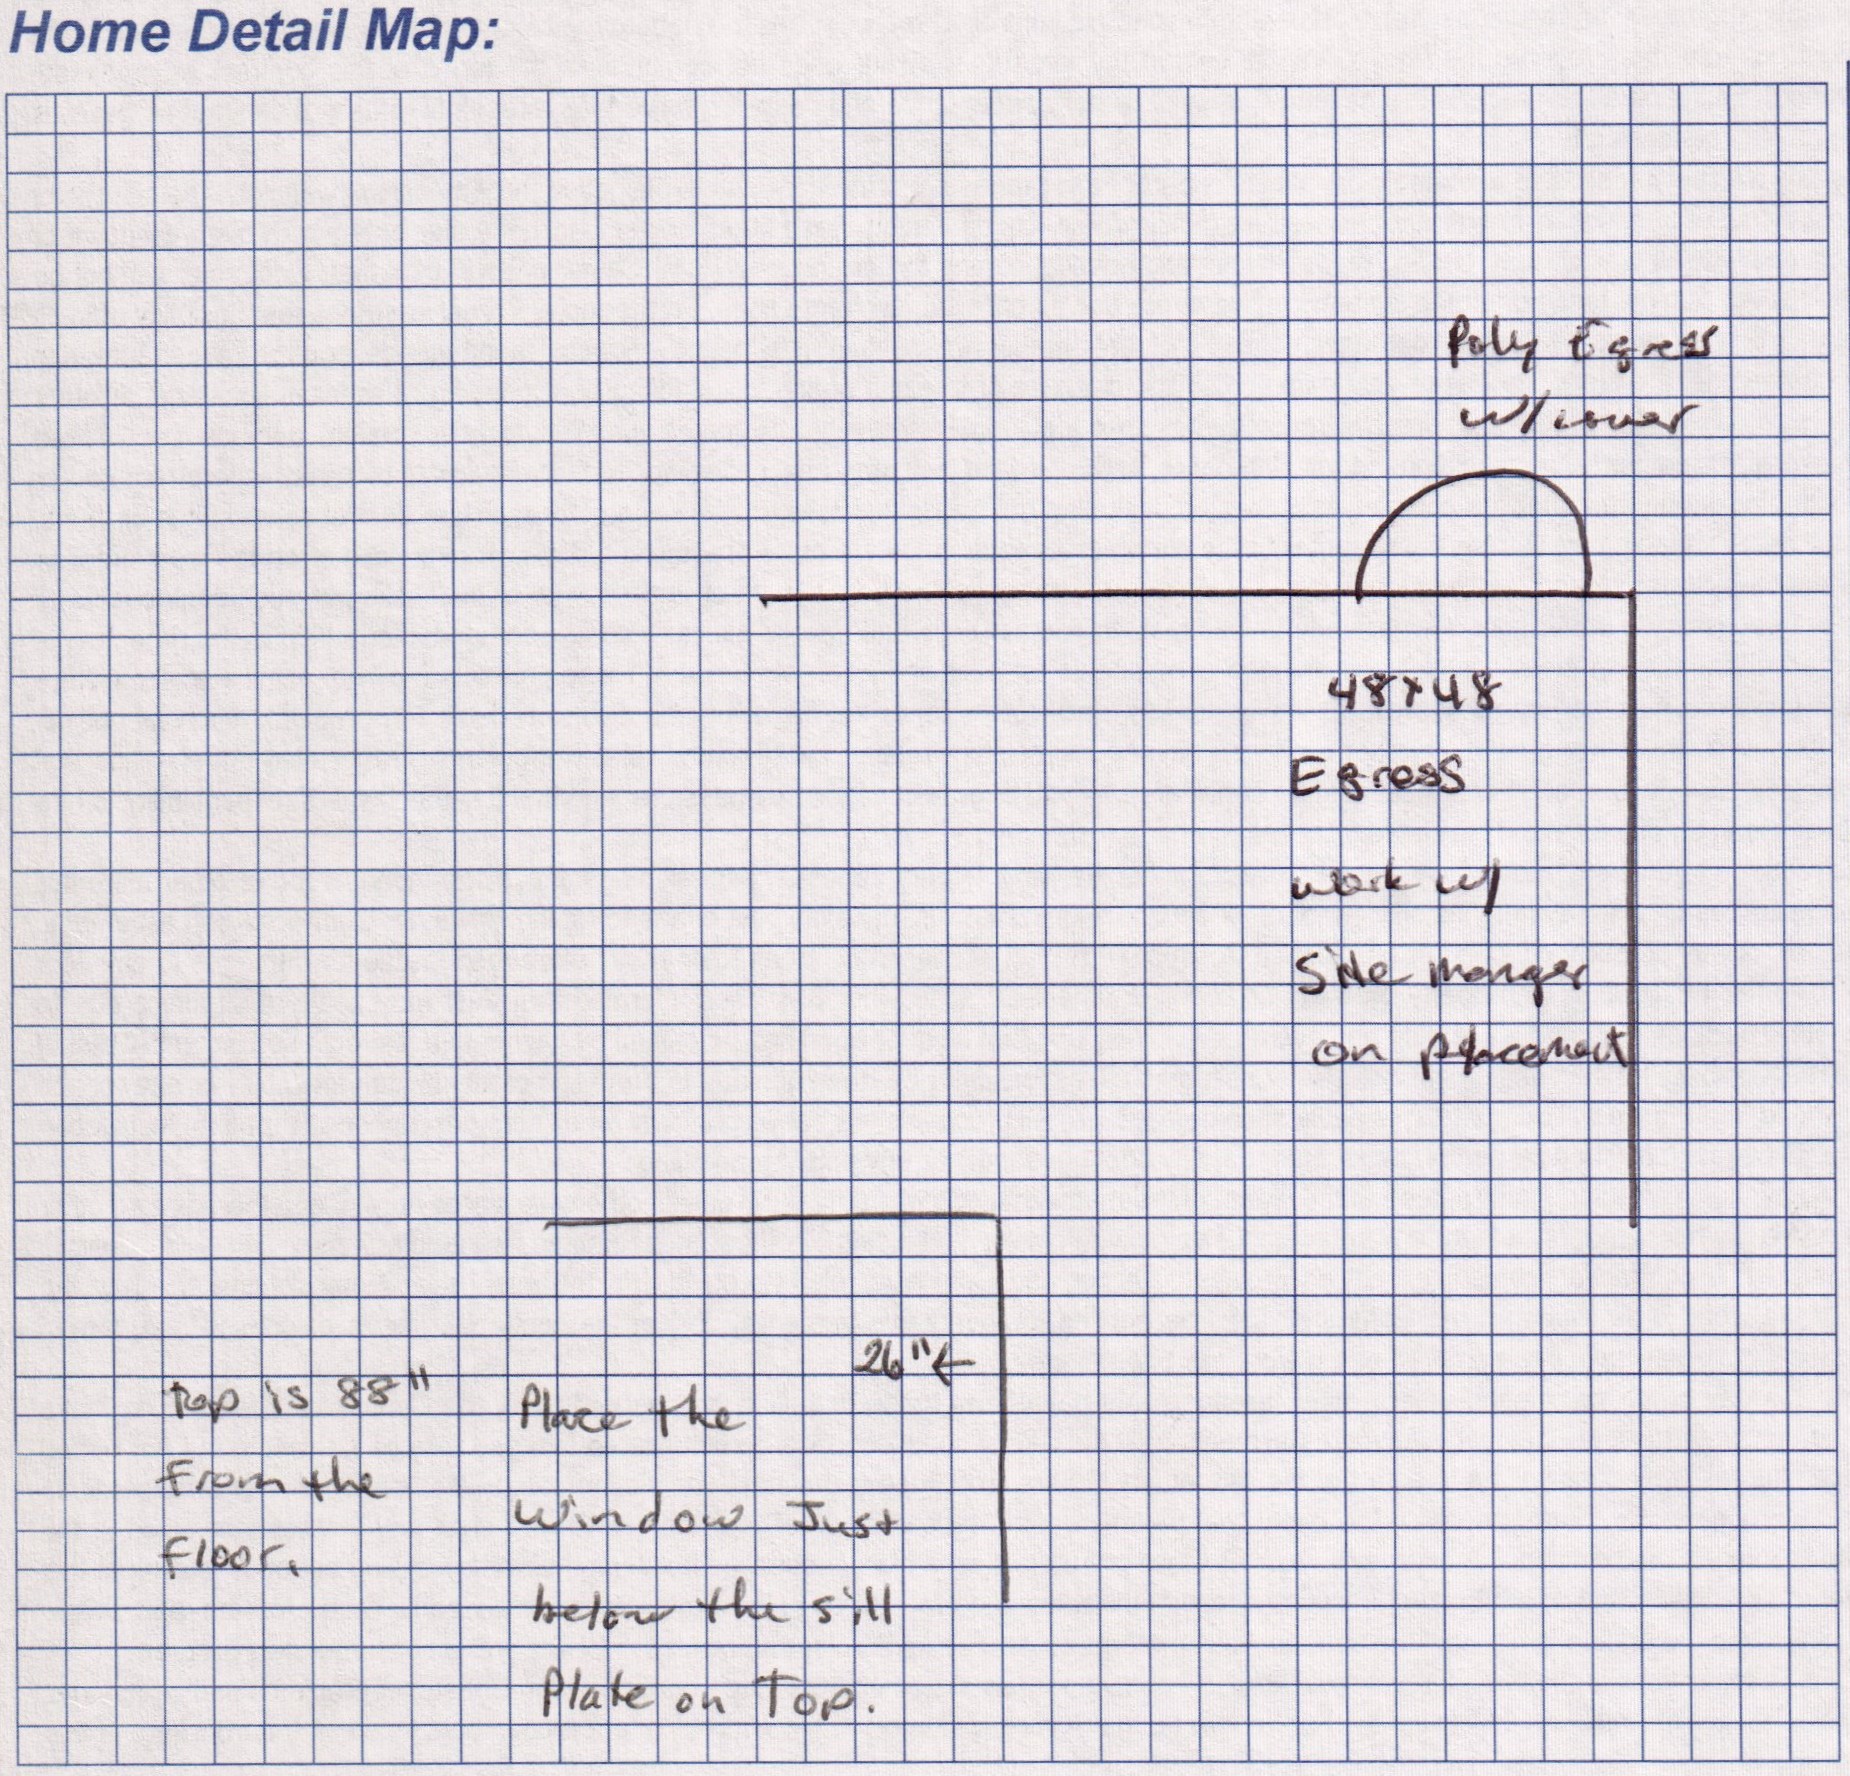 Home Detail Map:
Poly Egress
w/cover
48x48
Egress
work w/
Site manger
on placement
26"←
top is 88"
From the
Floor.
Place the
window Just
below the sill
Plate on Top.